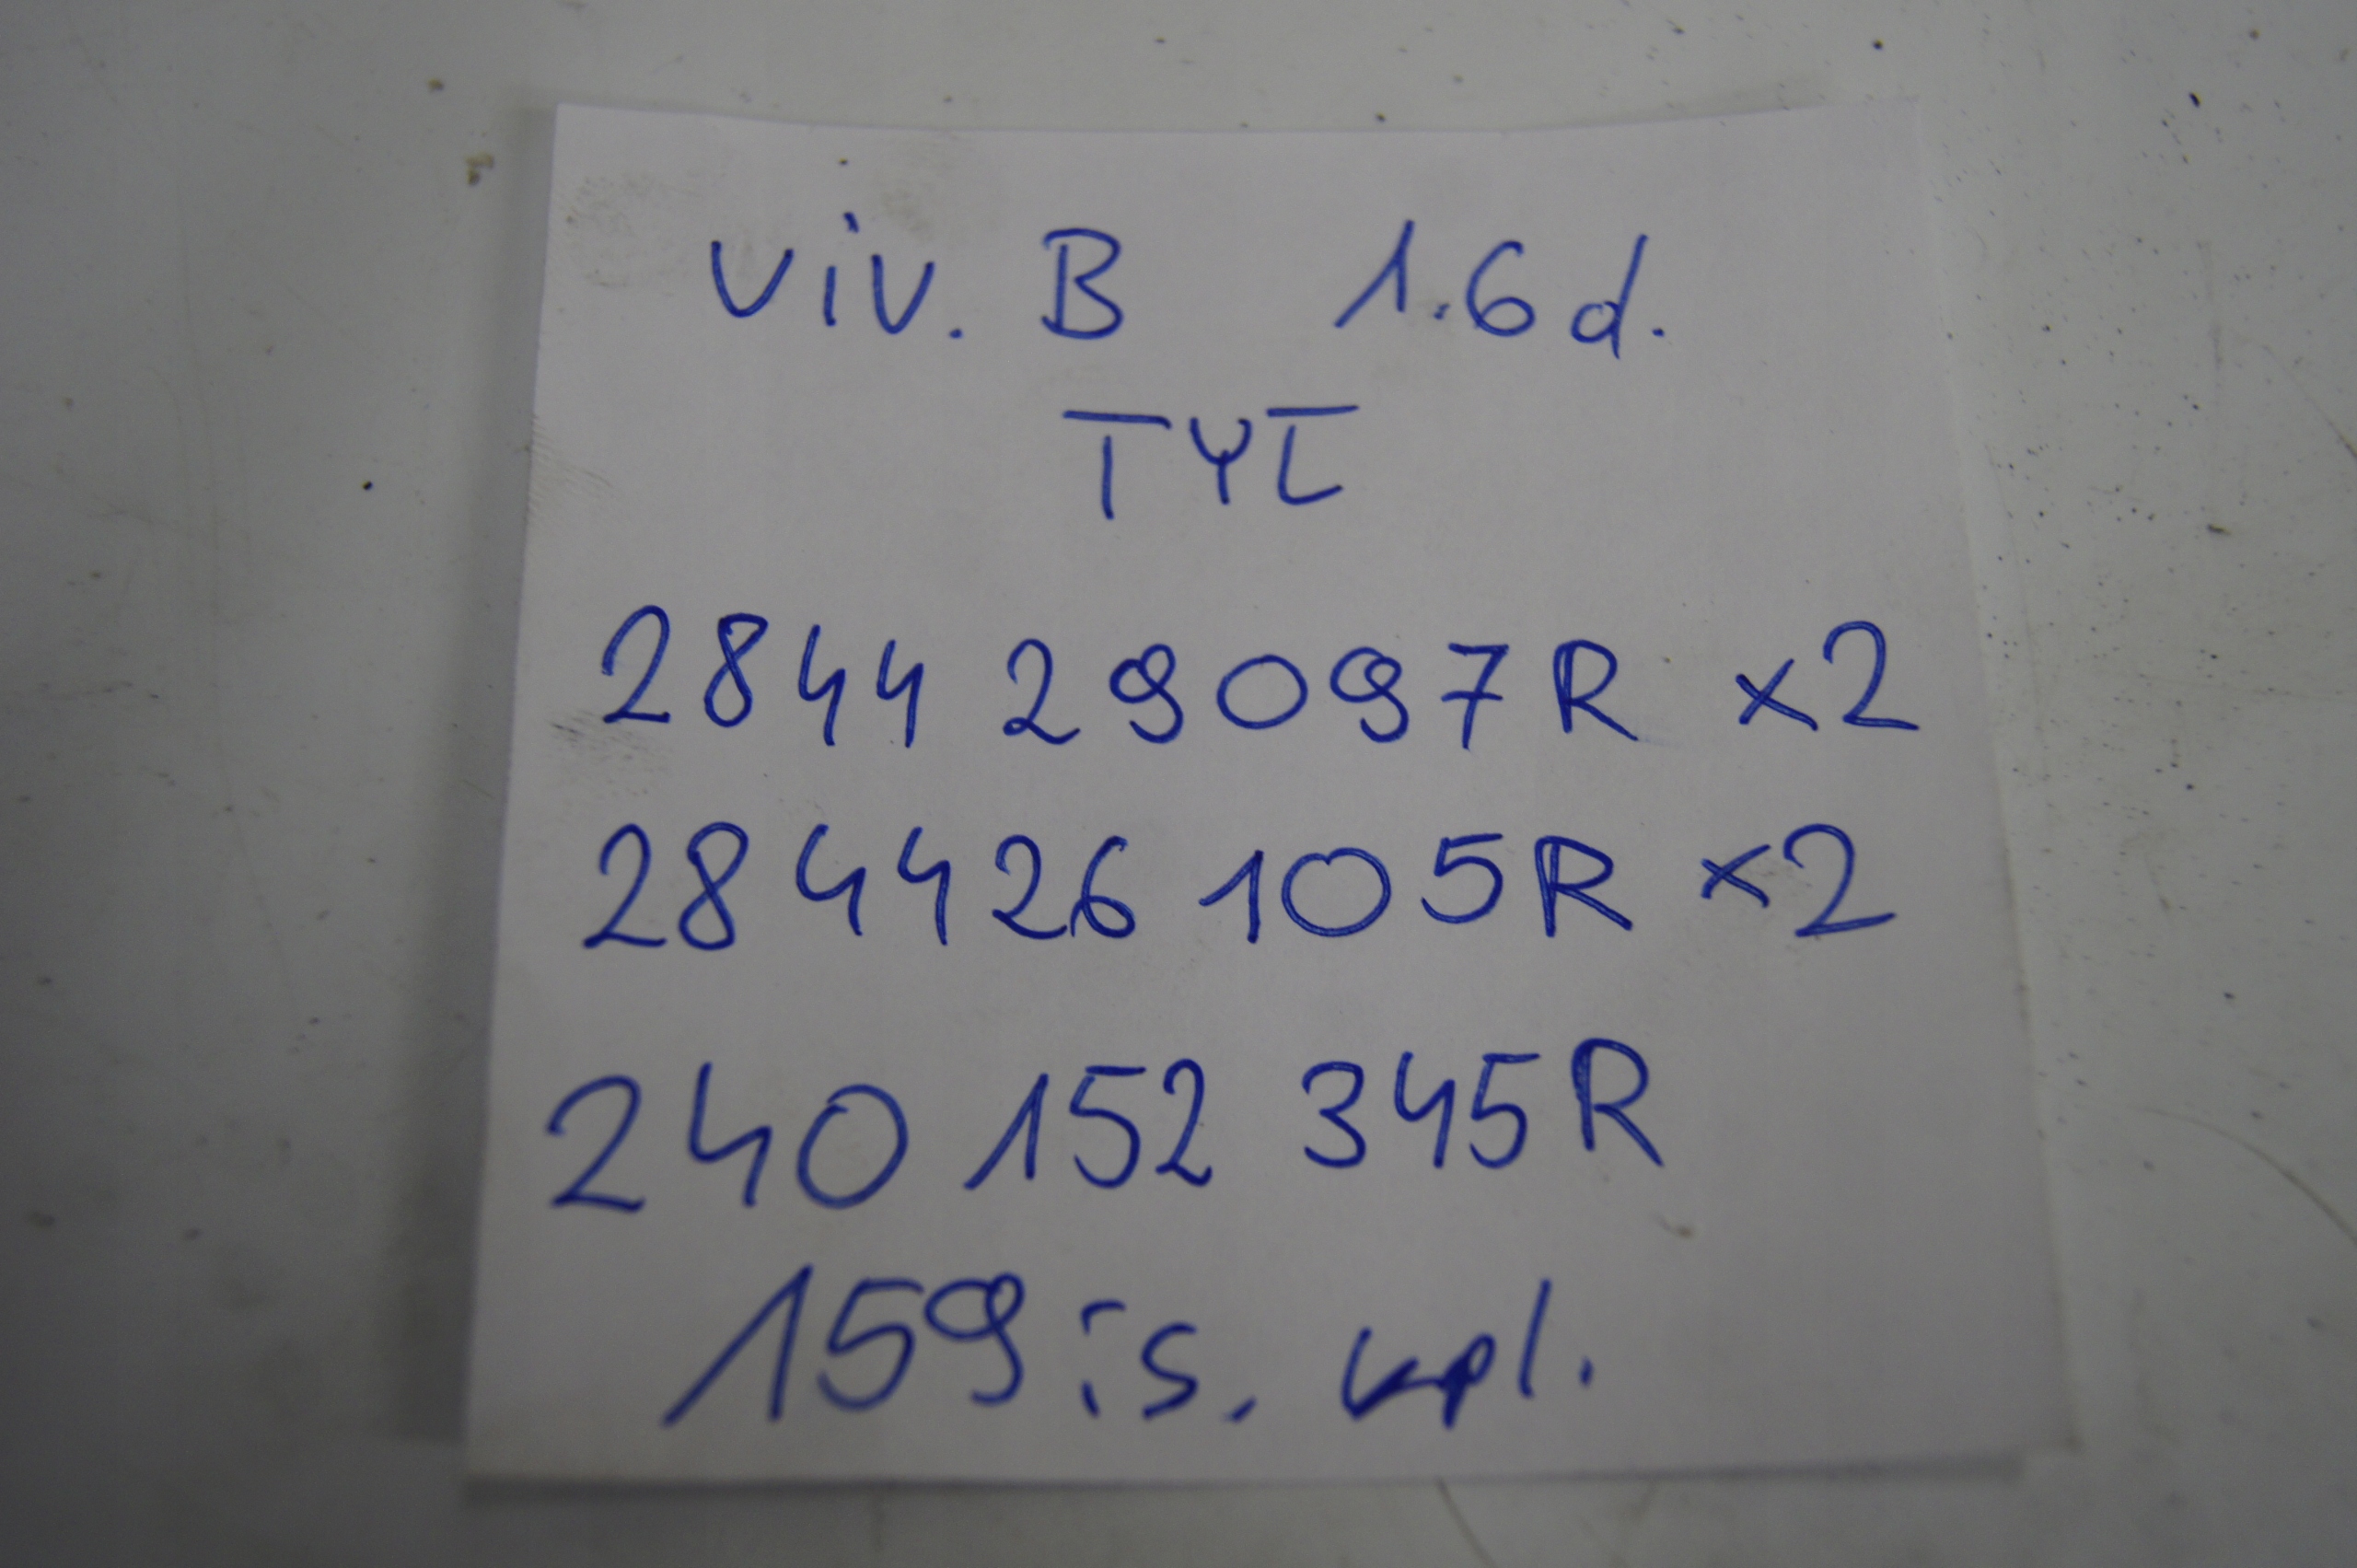 viv. B 1.6 d.
TYŁ
2844 29097R x2
284426105R x2
240 152 345R
159 is. kpl.